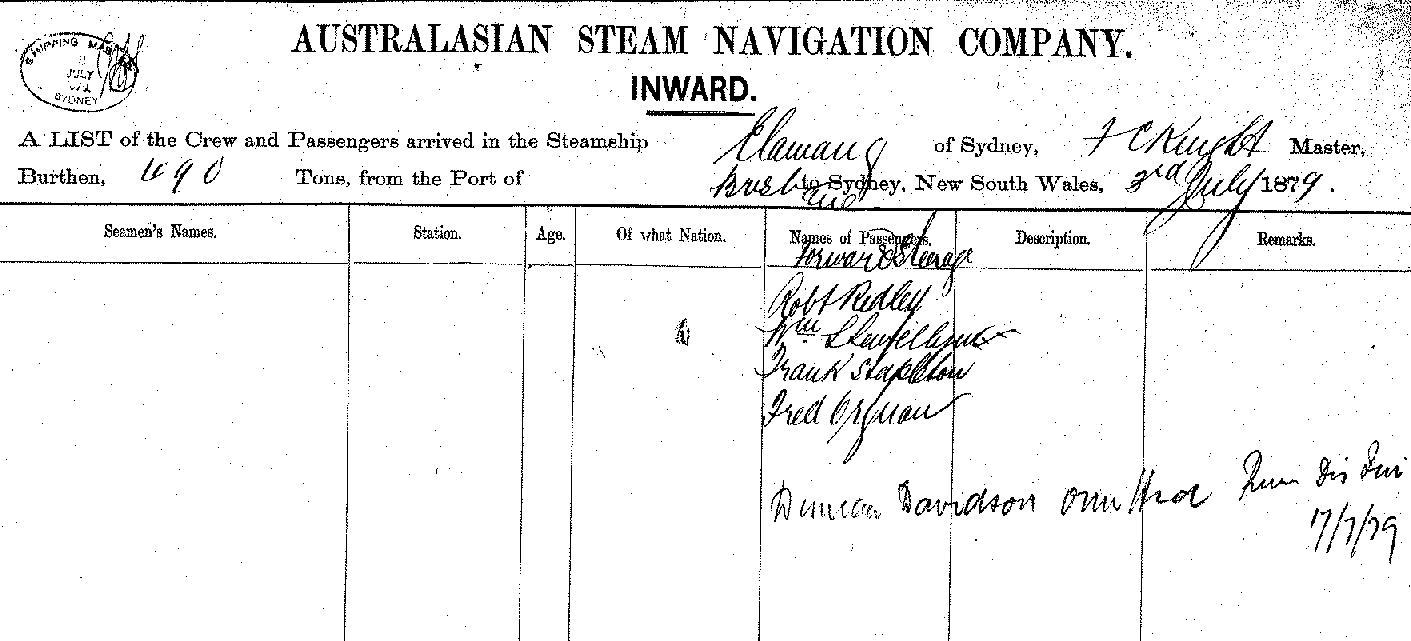 SHIPPING MASTER
JULY
SYDNEY
AUSTRALASIAN STEAM NAVIGATION COMPANY.
INWARD.
A LIST of the Crew and Passengers arrived in the Steamship Elamang of Sydney, F C Knight Master,
Burthen, 690 Tons, from the Port of Brisbane to Sydney, New South Wales, 3rd July 1879.
Seamen's Names. Station. Age. Of what Nation. Names of Passengers. Description. Remarks.
Forward Steerage
Robt Ridley
Wm
Frank Stapleton
Fred
Duncan Davidson omitted
17/7/79